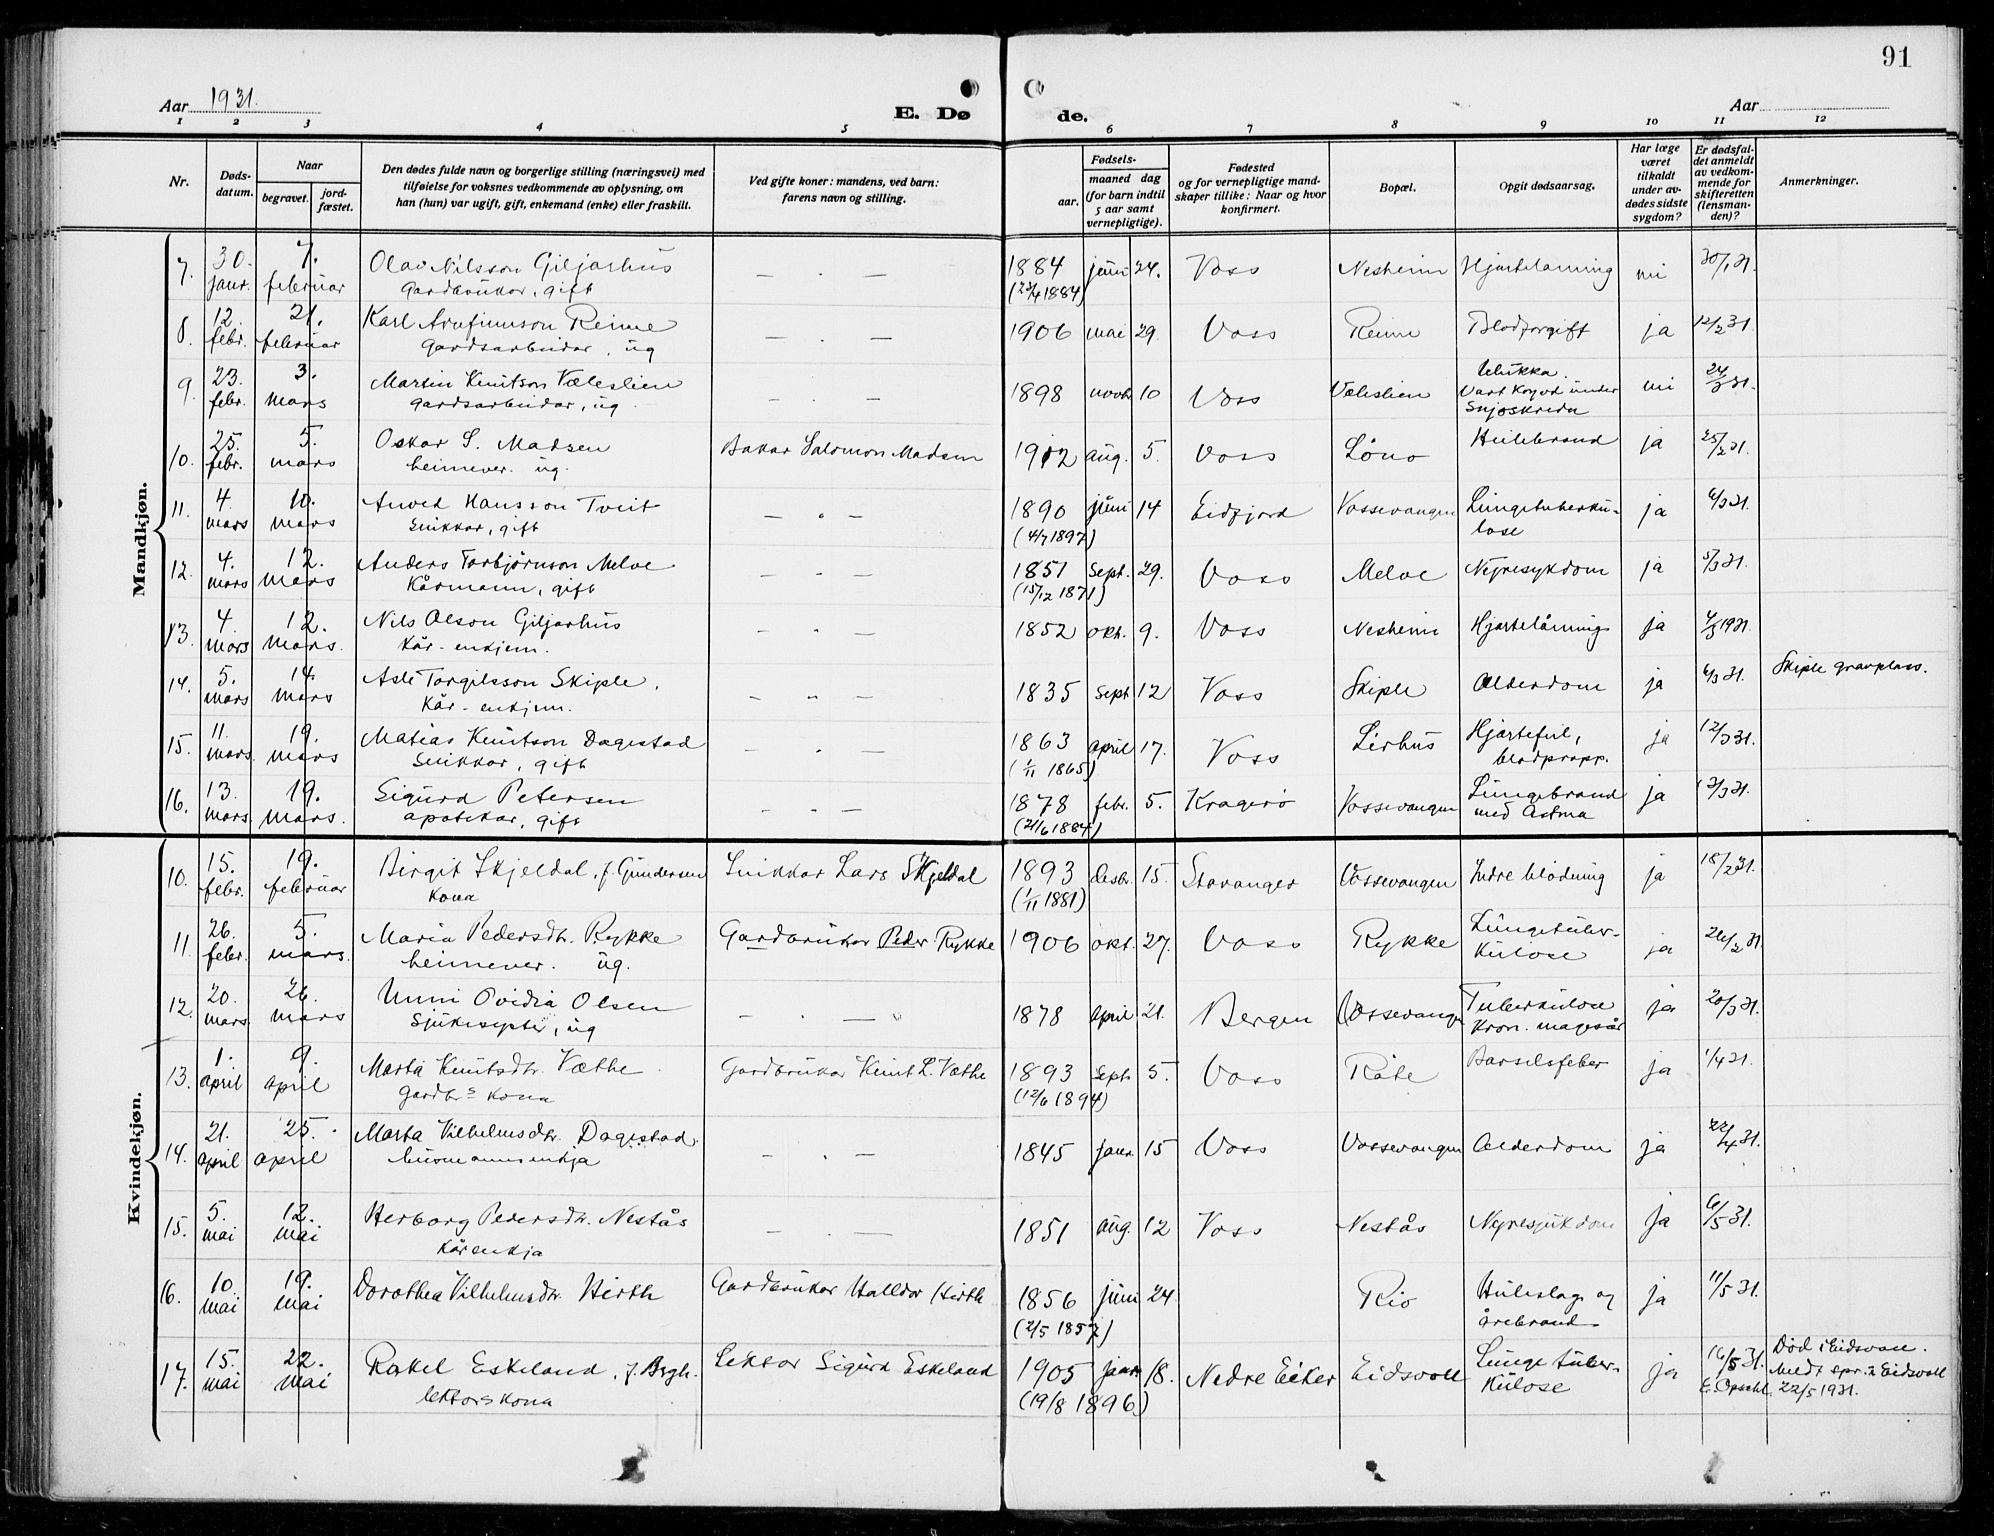 91
Aar 1931.
E. Dø de.
Aar
1 2 3 4 5 6 7 8 9 10 11 12
Nr.
Døds-
datum.
Naar
begravet.
jord-
fæstet.
Den dødes fulde navn og borgerlige stilling (næringsvei) med
tilføielse for voksnes vedkommende av oplysning, om
han (hun) var ugift, gift, enkemand (enke) eller fraskilt.
Ved gifte koner: mandens, ved barn:
farens navn og stilling.
Fødsels-
aar.
maaned dag
(for barn indtil
5 aar samt
vernepligtige).
Fødested
og for vernepligtige mand-
skaper tillike: Naar og hvor
konfirmert.
Bopæl.
Opgit dødsaarsag.
Har læge
været
tilkaldt
under av-
dødes sidste
sygdom?
Er dødsfal-
det anmeldt
av vedkom-
mende for
skifteretten
(lensman-
den)?
Anmerkninger.
Mandkjøn.
7. 30. 7. Olav Nilsson Giljarhus — . — 1884 juni 24. Voss Nesheim Hjartelamning nei 30/1 31.
janr. februar Gardbrukar, gift (23/4 1884)
8. 12. 21. Karl Arnfinnson Reime — . — 1906 mai 29. Voss Reime Blodforgift ja 12/2 31.
febr. februar Gardsarbeidar, ug
9. 23. 3. Martin Knutson Væleslien — . — 1898 novbr 10 Voss Væleslien Ulukka. nei 24/2 31.
febr. mars Gardsarbeidar, ug. Vart kvævd under
Snjoskreda
10. 25. 5. Oskar S. Madsen Bakar Salomon Madsen 1912 aug. 5. Voss Lono Heilebrand ja 25/2 31.
febr. mars heimever. ug.
11. 4. 10. Arved Hansson Tveit — . — 1890 juni 14 Eidfjord Vossevangen Lungetuberku- ja 6/3 31.
mars mars Snikkar, gift (4/7 1897) lose
12. 4. 12. Anders Torbjørnson Melve — . — 1851 Sept. 29. Voss Melve Nyresykdom ja 5/3 31.
mars mars Kårmann, gift (15/12 1871)
13. 4 12. Nils Olson Giljarhus — . — 1852 okt. 9. Voss Nesheim Hjartelåming ja 4/3 1931.
mars mars. Kår-enkjem.
14. 5. 14. Asle Torgilsson Skiple. — . — 1835 Sept 12 Voss Skiple Alderdom ja 6/3 31. Skiple gravplass.
mars mars Kår-enkjem.
15. 11. 19. Matias Knutson Dagestad — . — 1863 april 17. Voss Lirhus Hjartefeil, ja 12/3 31.
mars. mars Snikkar, gift (1/11 1865) blodpropp.
16. 13. 19. Sigurd Petersen — . — 1878 febr. 5. Kragerø Vossevangen Lungebrand ja 13/3 31.
mars mars. apotekar, gift (21/6 1884) med Astma
Kvindekjøn.
10. 15. 19. Birgit Skjeldal, f. Gundersen Snikkar Lars Skjeldal 1893 Desbr. 15. Stavanger Vossevangen Indre blødning ja 18/2 31.
febr. februar Kona (1/11 1881)
11. 26. 5. Maria Pedersdtr. Rykke Gardbrukar Peder Rykke 1906 okt. 27. Voss Rykke Lungetuber- ja 26/2 31
febr. mars. heimever. ug. kulose
12. 20. 26. Unni Ovidia Olsen — . — 1878 april 21. Bergen Vossevangen Tuberkulose ja 20/3 31.
mars. mars Sjukesyster, ug Kron. magesår
13. 1. 9. Marta Knutsdtr. Væthe Gardbrukar Knut L. Væthe 1893 Sept. 5. Voss Råte Barselsfeber ja 1/4 31.
april april gardbrs kona (12/6 1894)
14. 21. 25. Marta Vilhelmsdtr. Dagestad. — . — 1845 janr 15 Voss Vossevangen Alderdom ja 22/4 31.
april april husmannsenkja
15. 5. 12. Herborg Pedersdtr. Nestås — . — 1851 aug. 12 Voss Nestås Nyresjukdom ja 6/5 31.
mai mai Kårenkja
16. 10. 19. Dorothea Vilhelmsdtr. Hirth Gardbrukar Halldor Hirth 1856 juni 24 Rio Heileslag og ja 11/5 31.
mai mai (2/5 1857) årebrand
17. 15. 22. Rakel Eskeland, f. Bergh. Lektor Sigurd Eskeland 1905 janr 18. Nedre Eiker Eidsvoll Lungetuber- ja 16/5 31. Død i Eidsvoll.
mai mai lektorskona (19/8 1896) kulose E. Opsahl. Meldt spr. i Eidsvoll
22/5 1931.